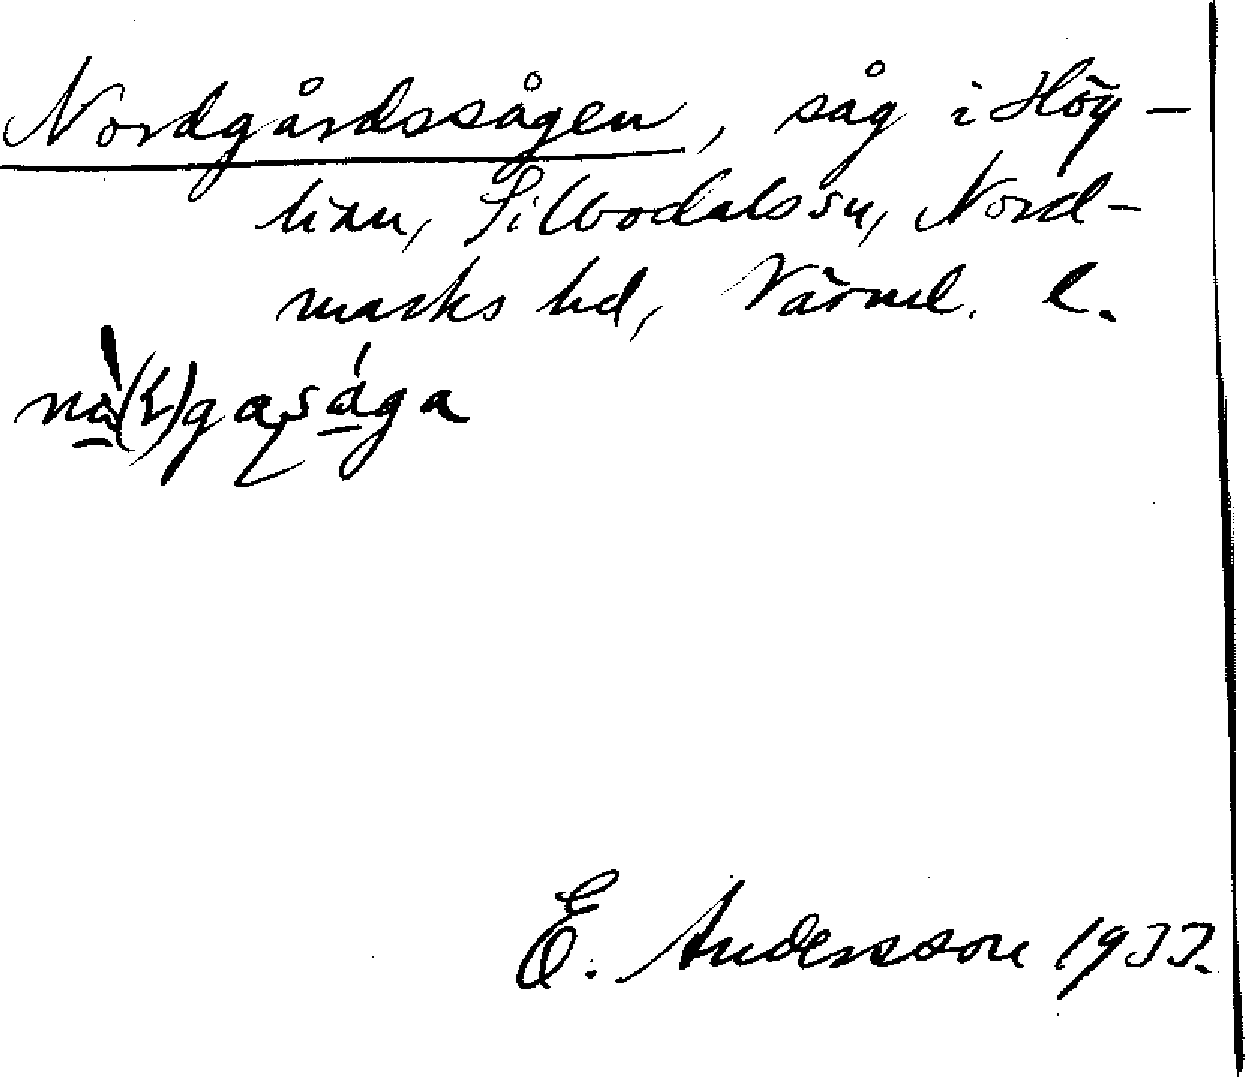 Nordgårdssågen, såg i Hög-
lian, Silbodals sn, Nord-
marks hd, Värml. l.
E. Andersson 1933.